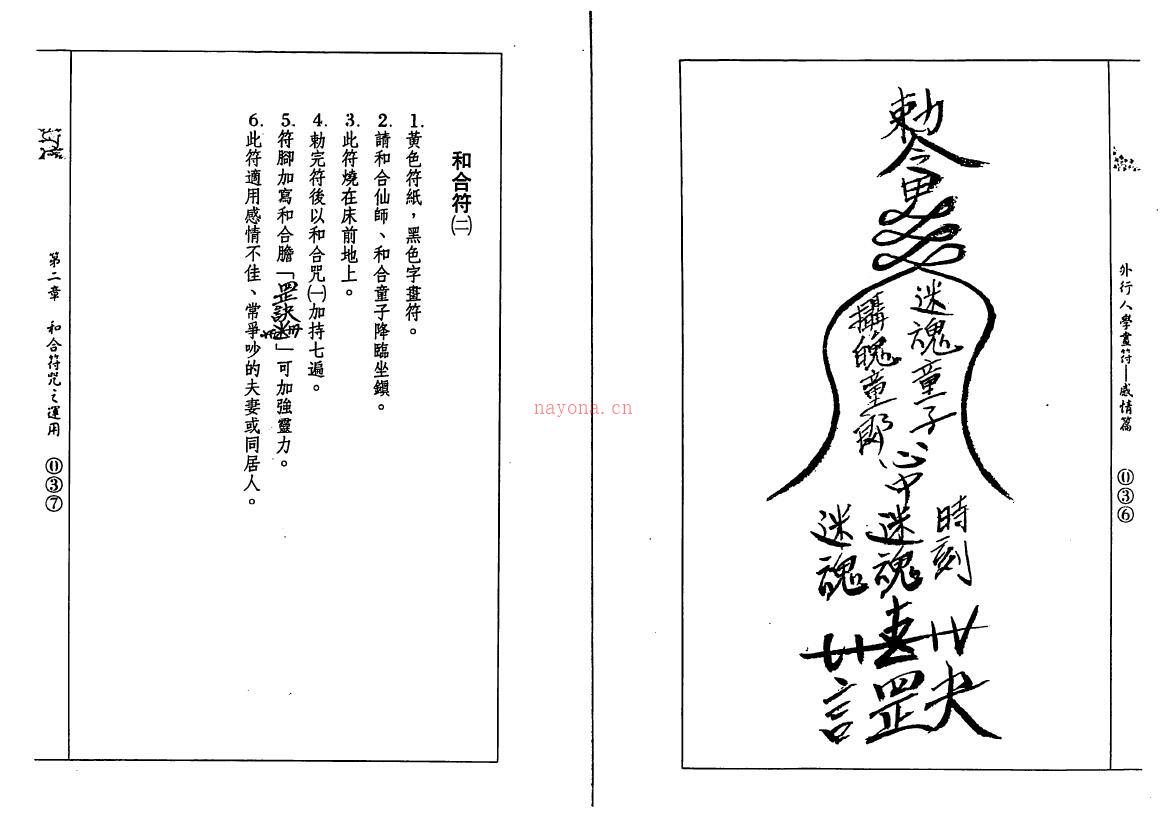 外行人學畫符—感情篇 036
勅令
迷魂童子
攝魄童郎
心中
時刻
迷魂
迷魂
夫
罡
言
和合符㈡
1.黃色符紙，黑色字畫符。
2.請和合仙師、和合童子降臨坐鎮。
3.此符燒在床前地上。
4.勅完符後以和合咒㈠加持七遍。
5.符腳加寫和合膽「」可加強靈力。
6.此符適用感情不佳、常爭吵的夫妻或同居人。
第二章 和合符咒之運用 037
nayona.cn